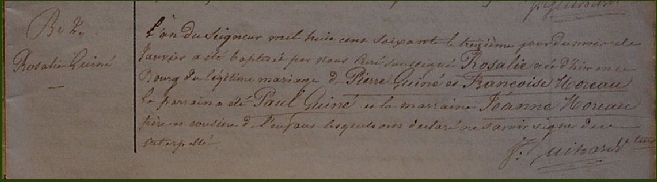 B. 4.
Rosalie Guiné
L'an du Seigneur mil huit cent soixante le treizième jour du mois de
Janvier a été baptisée par nous curé soussigné Rosalie née d'hier
Bourg du légitime mariage de Pierre Guiné et Françoise Moreau
le parrain a été Paul Guiné et la marraine Jeanne Moreau
père et cousine de l'enfant lesquels ont déclaré ne savoir signer de ce
interpellé
F. Guitard